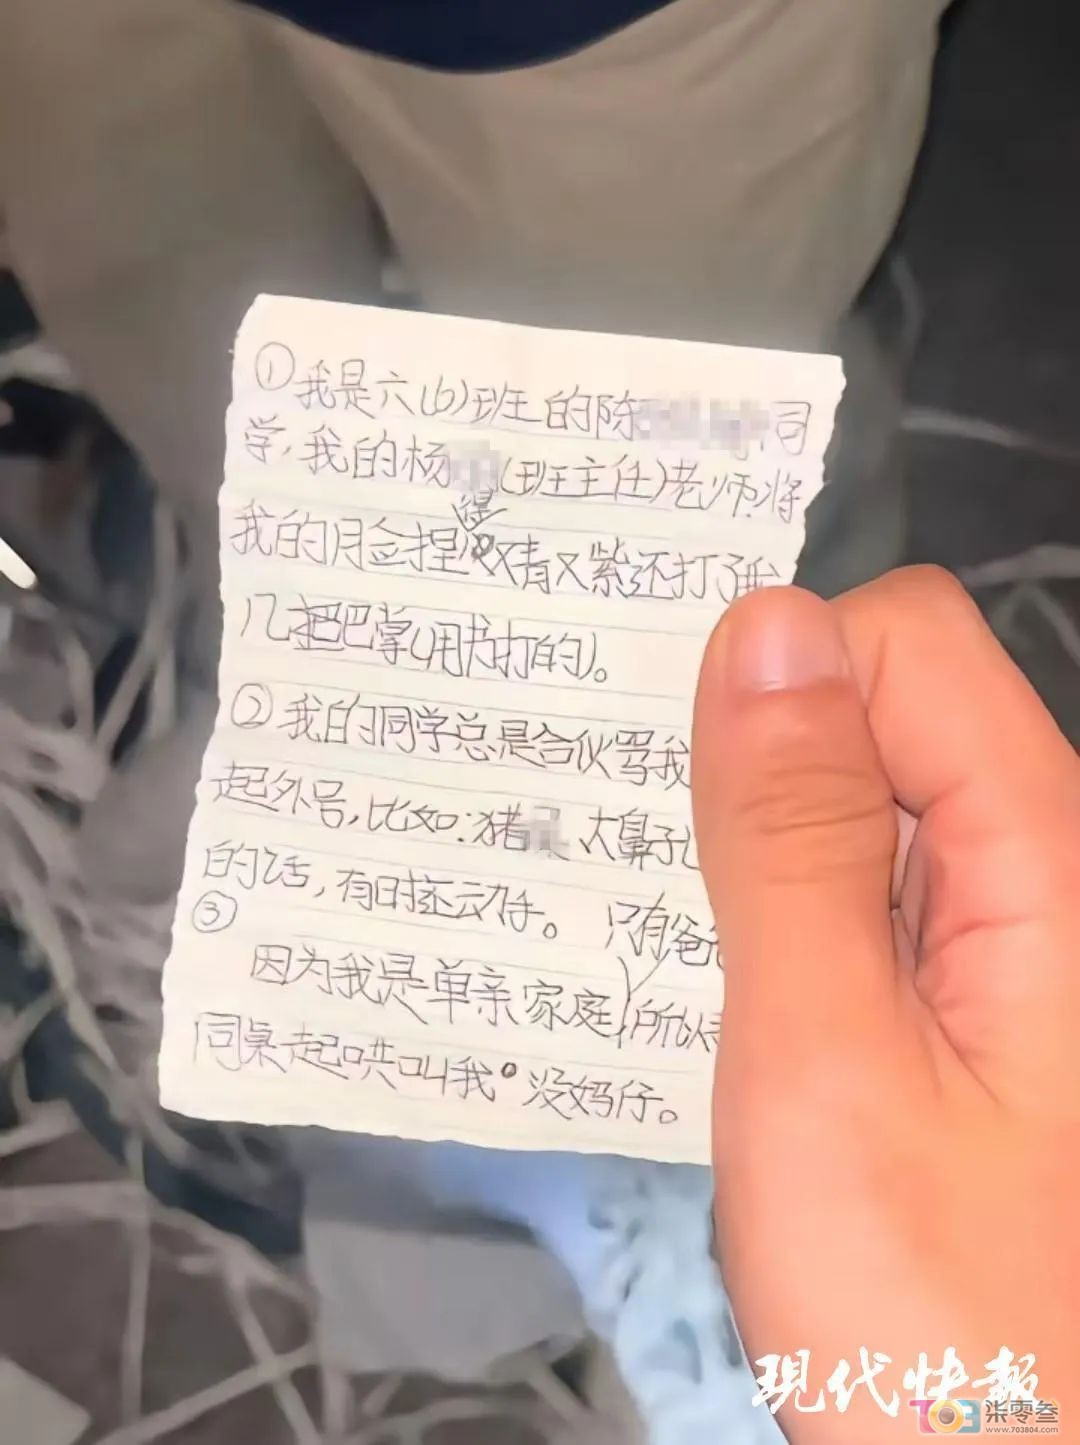 ①我是六(6)班的陈 同
学,我的杨 (班主任)老师将
得
我的脸捏 又青又紫还打了我
几把巴掌(用书打的)。
②我的同学总是合伙骂我
起外号,比如:猪 大鼻孔
的话,有时还动手。
③
只有爸爸
因为我是单亲家庭,所以
同桌起哄叫我。没妈仔。
现代快报
703 柒零叁
www.703804.com